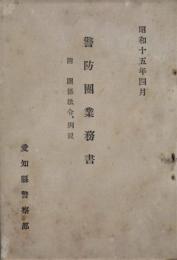 昭和十五年四月
警防團業務書
附 關係法令、例規
愛知縣警察部